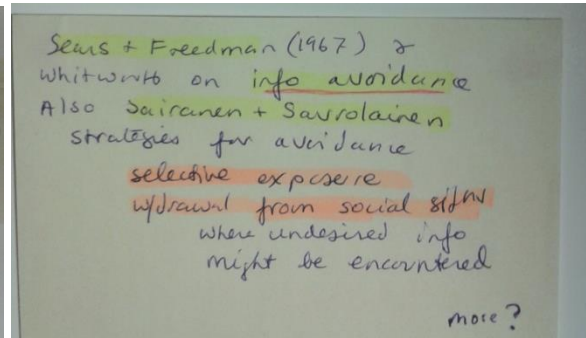 Sears + Freedman (1967) &
Whitworth on info avoidance
Also Sairanen + Savrolainen
strategies for avoidance
selective exposure
w/drawal from social sitns
where undesired info
might be encountered
more?